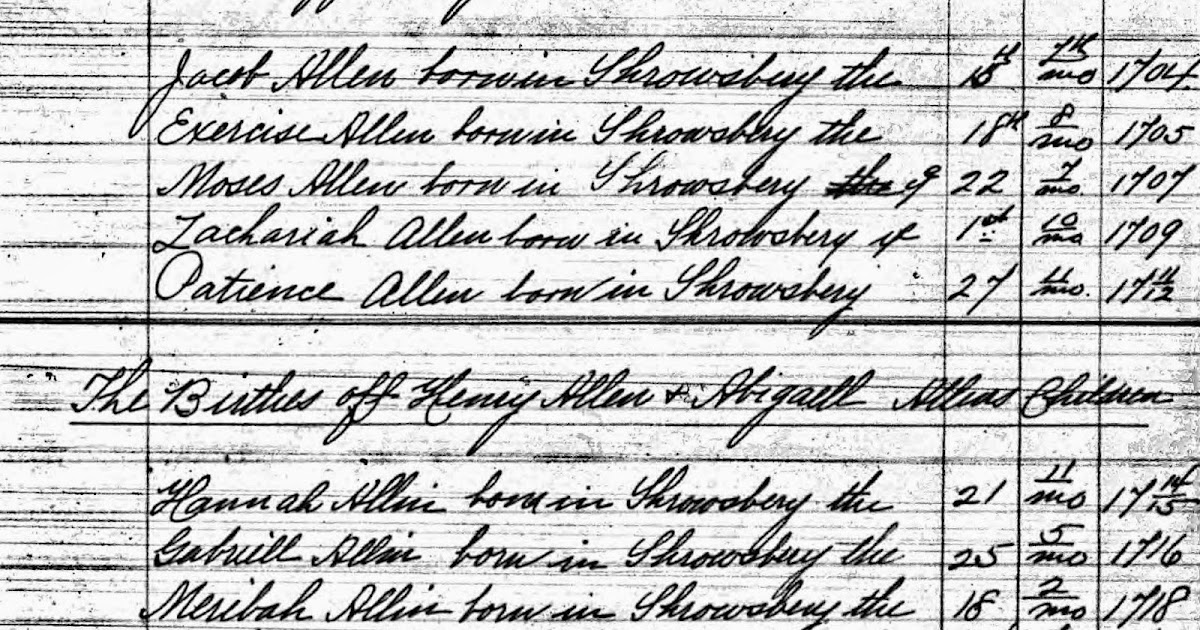 Jacob Allen born in Shrowsbery the 18th 7th mo 1704
Exercise Allen born in Shrowsbery the 18th 8 mo 1705
Moses Allen born in Shrowsbery the ye 22 7 mo 1707
Zachariah Allen born in Shrowsbery ye 1st 10 mo 1709
Patience Allen born in Shrowsbery 27 11 mo. 17 11/12
The Birthes off Henry Allen & Abigaell Allens Children
Hannah Allin born in Shrowsbery the 21 11 mo 17 14/15
Gabriell Allin born in Shrowsbery the 25 5 mo 1716
Meribah Allin born in Shrowsbery the 18 2 mo 1718